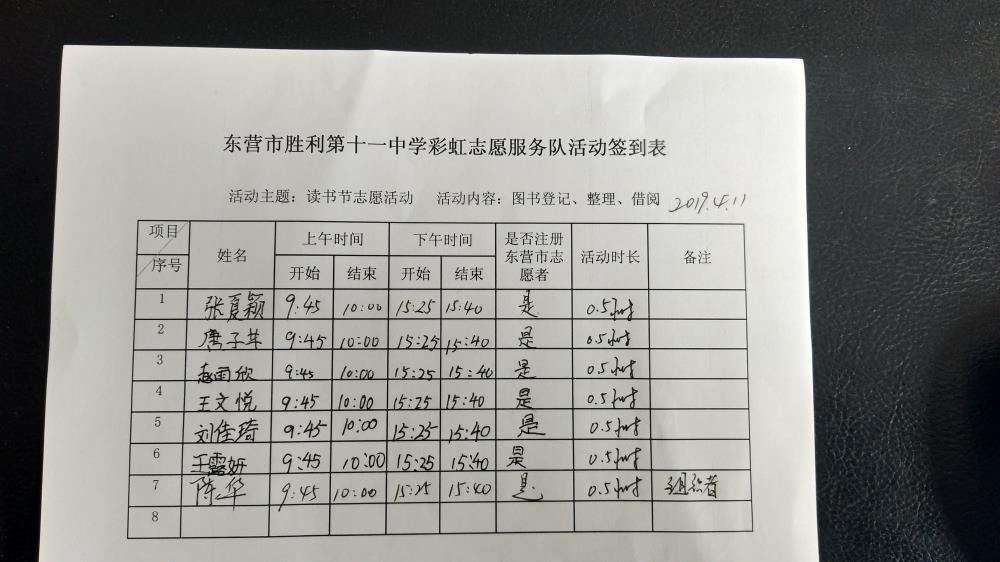 东营市胜利第十一中学彩虹志愿服务队活动签到表
活动主题：读书节志愿活动 活动内容：图书登记、整理、借阅 2019.4.11
项目 序号 姓名 上午时间 下午时间 是否注册东营市志愿者 活动时长 备注
开始 结束 开始 结束
1 张夏颖 9:45 10:00 15:25 15:40 是 0.5小时
2 唐子苹 9:45 10:00 15:25 15:40 是 0.5小时
3 赵雨欣 9:45 10:00 15:25 15:40 是 0.5小时
4 王文悦 9:45 10:00 15:25 15:40 是 0.5小时
5 刘佳琦 9:45 10:00 15:25 15:40 是 0.5小时
6 王露妍 9:45 10:00 15:25 15:40 是 0.5小时
7 陈华 9:45 10:00 15:25 15:40 是 0.5小时 组织者
8